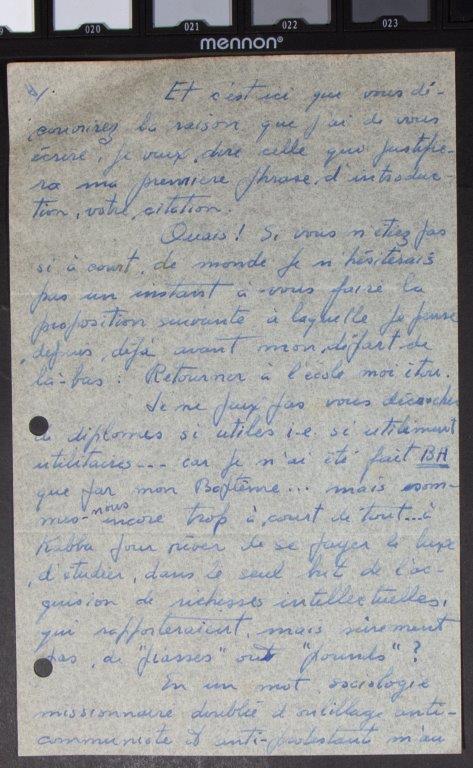 020 021 022 023
mennon®
Et c'est ici que vous dé-
couvrirez la raison que j'ai de vous
écrire, je veux dire celle qui justifie-
ra ma première phrase d'introduc-
tion, votre citation.
Ouais! Si vous n'étiez pas
si à court de monde je n'hésiterais
pas un instant à vous faire la
proposition suivante à laquelle je pense
depuis déjà avant mon départ de
là-bas: Retourner à l'école moi itou.
Je ne puis pas vous décrocher
de diplomes si utiles i.e. si utilement
utilitaires... car je n'ai été fait BA
que par mon Baptême... mais som-
mes-nous encore trop à court de tout... à
Kabba pour rêver de se payer le luxe
d'étudier, dans le seul but de l'ac-
quision de richesses intellectuelles,
qui rapporteraient, mais sûrement
pas, de "piasses" out "pounds"?
En un mot sociologie
missionnaire doublée d'outillage anti-
communiste et anti-protestant m'au